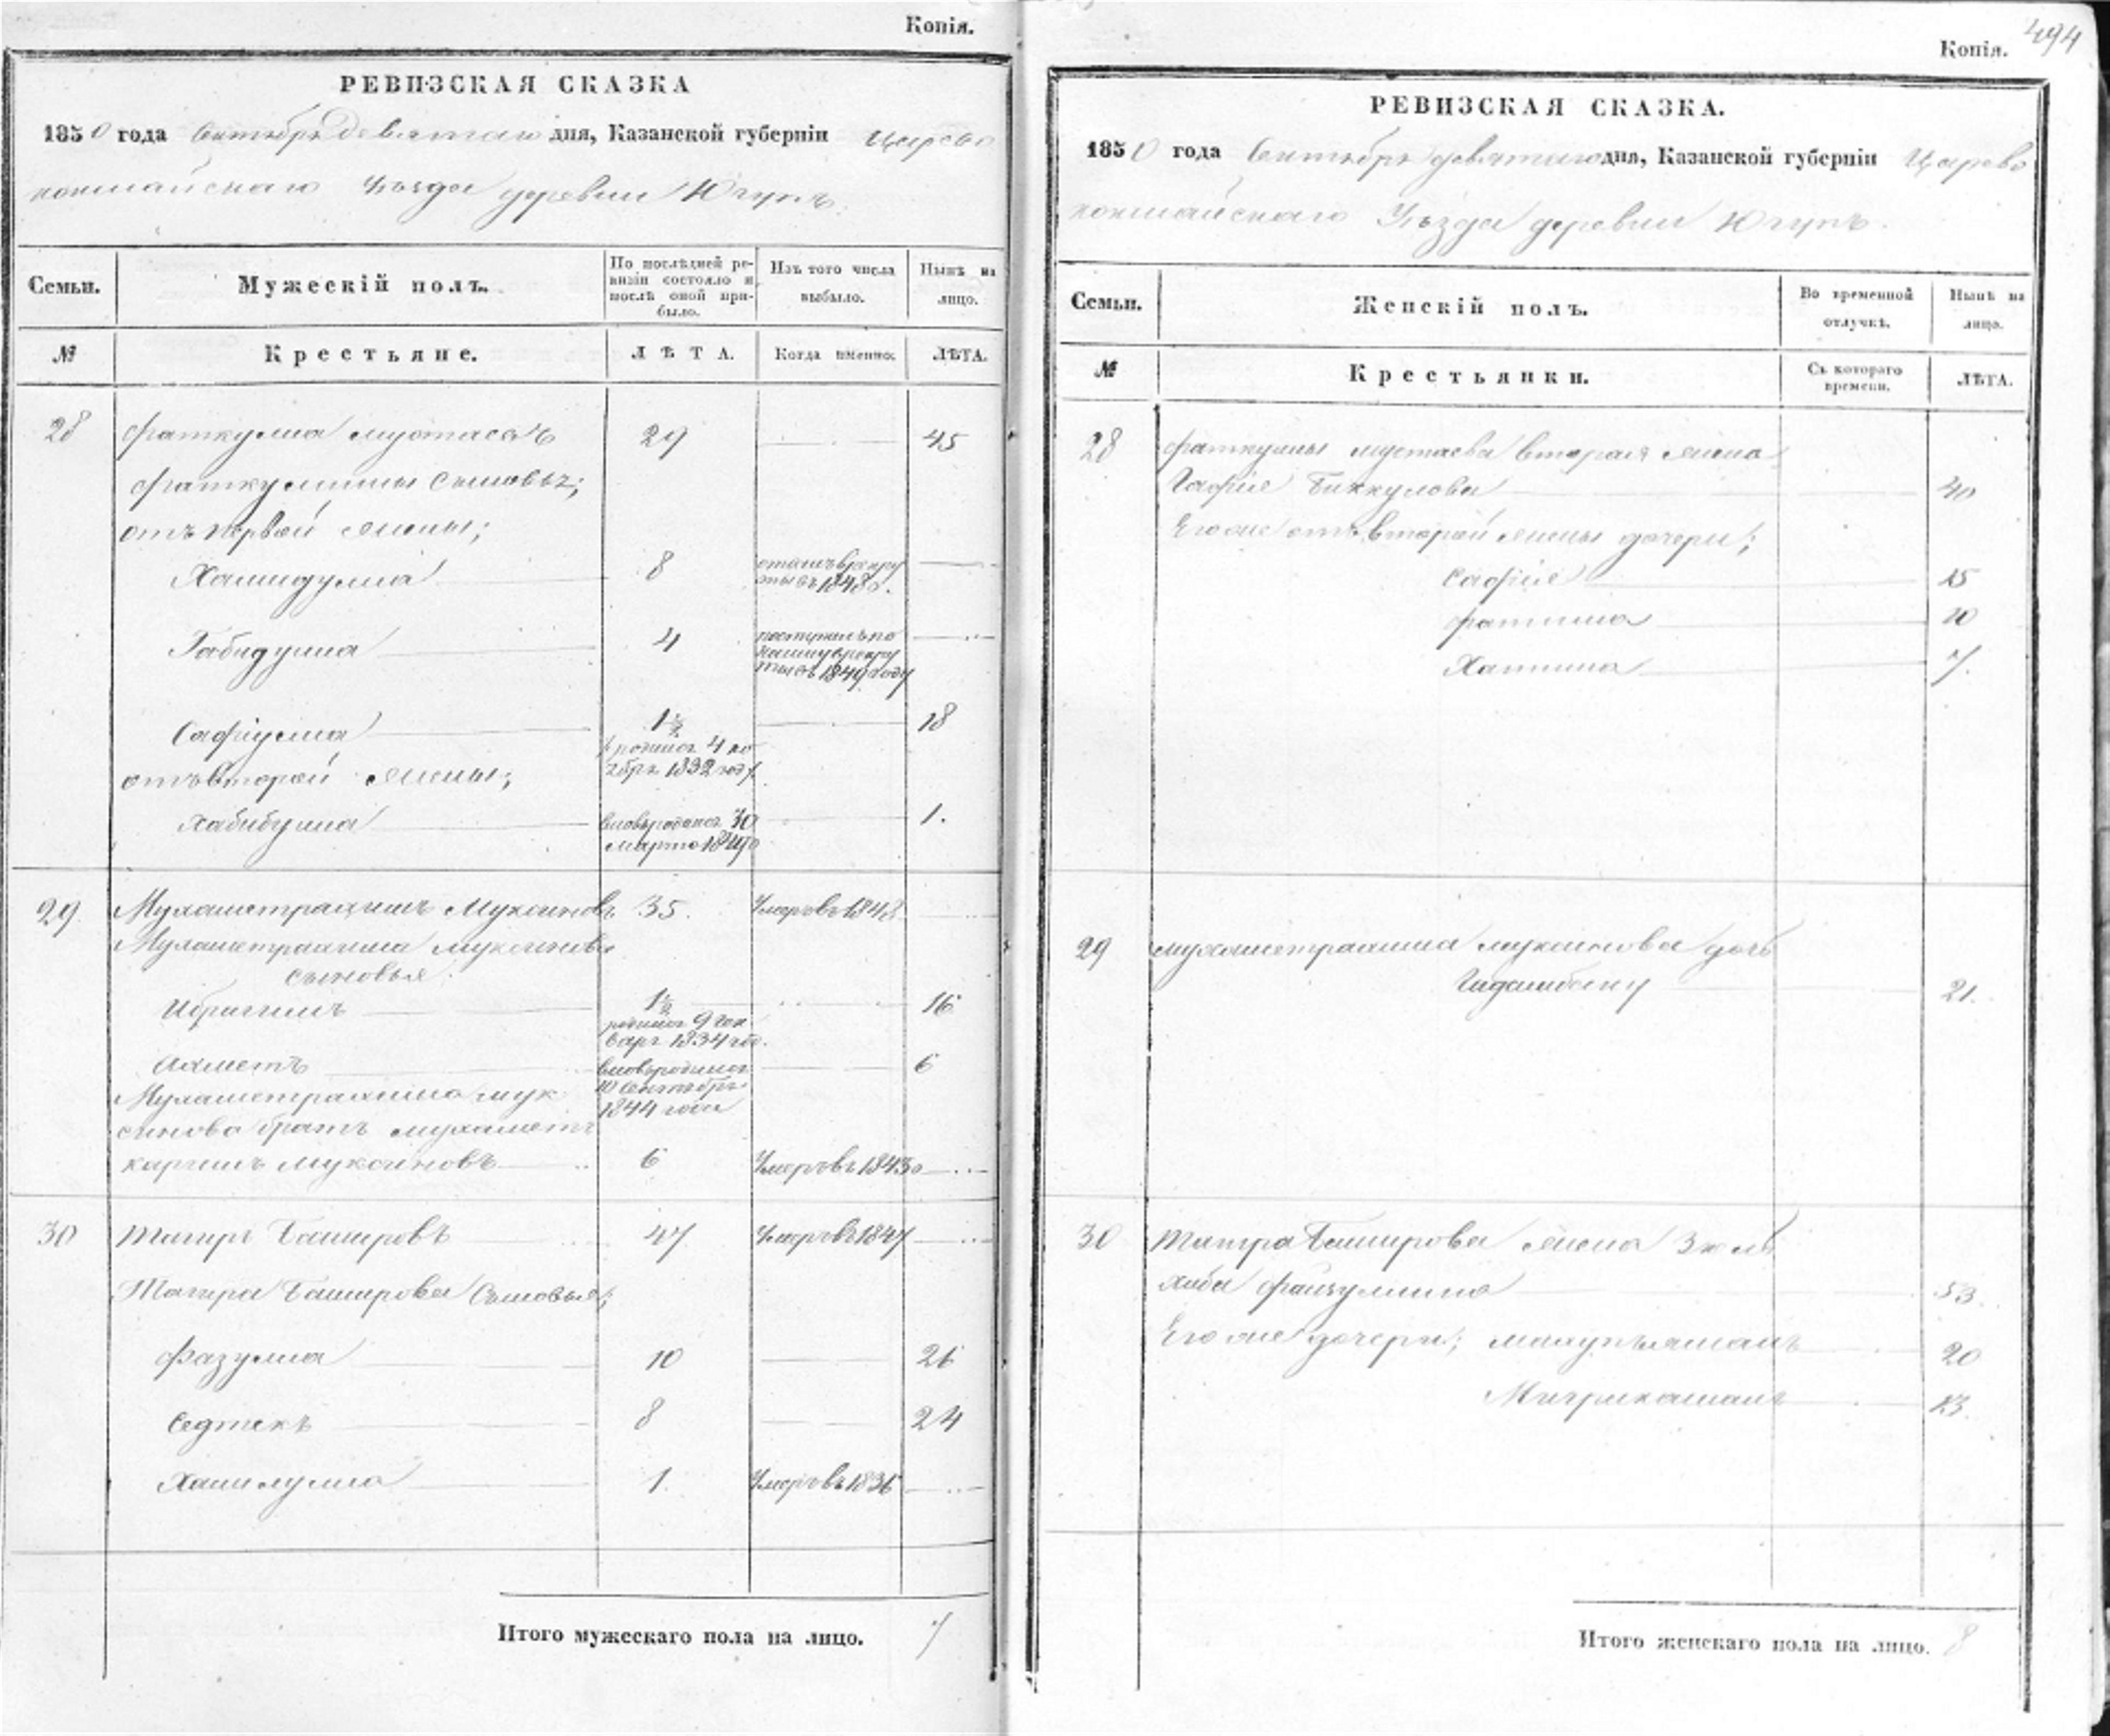 Копія.
РЕВИЗСКАЯ СКАЗКА
1850 года Сентября девятаго дня, Казанской губерніи Царево
кокшайскаго Уѣзда деревни Югупъ.
Семьи. Мужескій полъ. По послѣдней ре- Изъ того числа Нынѣ на
визіи состояло и выбыло. лицо.
послѣ оной при-
было.
№ Крестьяне. ЛѢТА. Когда именно. ЛѢТА.
28 Фаткулла Мустаевъ 29 45
Фаткуллины сыновья;
отъ первой жены;
Хамидулла 8 отданъ въ рекру
ты въ 1848 г.
Габидулла 4
въ 1849 году
Сафіулла 1½ 18
родился 4 но
ября 1832 году
отъ второй жены;
Хабибулла вновьродился 30 1.
марта 1849
29 Мухаметрахимъ Муксиновъ 35. Умеръ въ 1848
Мухаметрахима Муксинова
сыновья
Ибрагимъ 1½ 16
родился 9 Ген
варя 1834 год.
Ахметъ вновьродился 6
10 Сентября
1844 года
Мухаметрахима Мук
синова братъ Мухамет
каримъ Муксиновъ 6 Умеръ въ 1843
30 Тагиръ Башировъ 47 Умеръ въ 1847
Тагира Баширова сыновья;
Фазулла 10 26
Седтекъ 8 24
Хамидулла 1. Умеръ въ 1836
Итого мужескаго пола на лицо. 7
494
Копія.
РЕВИЗСКАЯ СКАЗКА.
1850 года Сентября девятаго дня, Казанской губерніи Царево
кокшайскаго Уѣзда деревни Югупъ.
Семьи. Женскій полъ. Во временной Нынѣ на
отлучкѣ. лицо.
№ Крестьянки. Съ котораго ЛѢТА.
времени.
28 Фаткуллы Мустаева вторая жена
Гафія Биккулова 40
Его же отъ второй жены дочери;
Сафія 15
Фатима 10
Хатима 7.
29 Мухаметрахима Муксинова дочь
21.
30 Тагира Баширова жена Зюль
хаба Файзуллина 53.
Его же дочери; 20
13.
Итого женскаго пола на лицо. 8